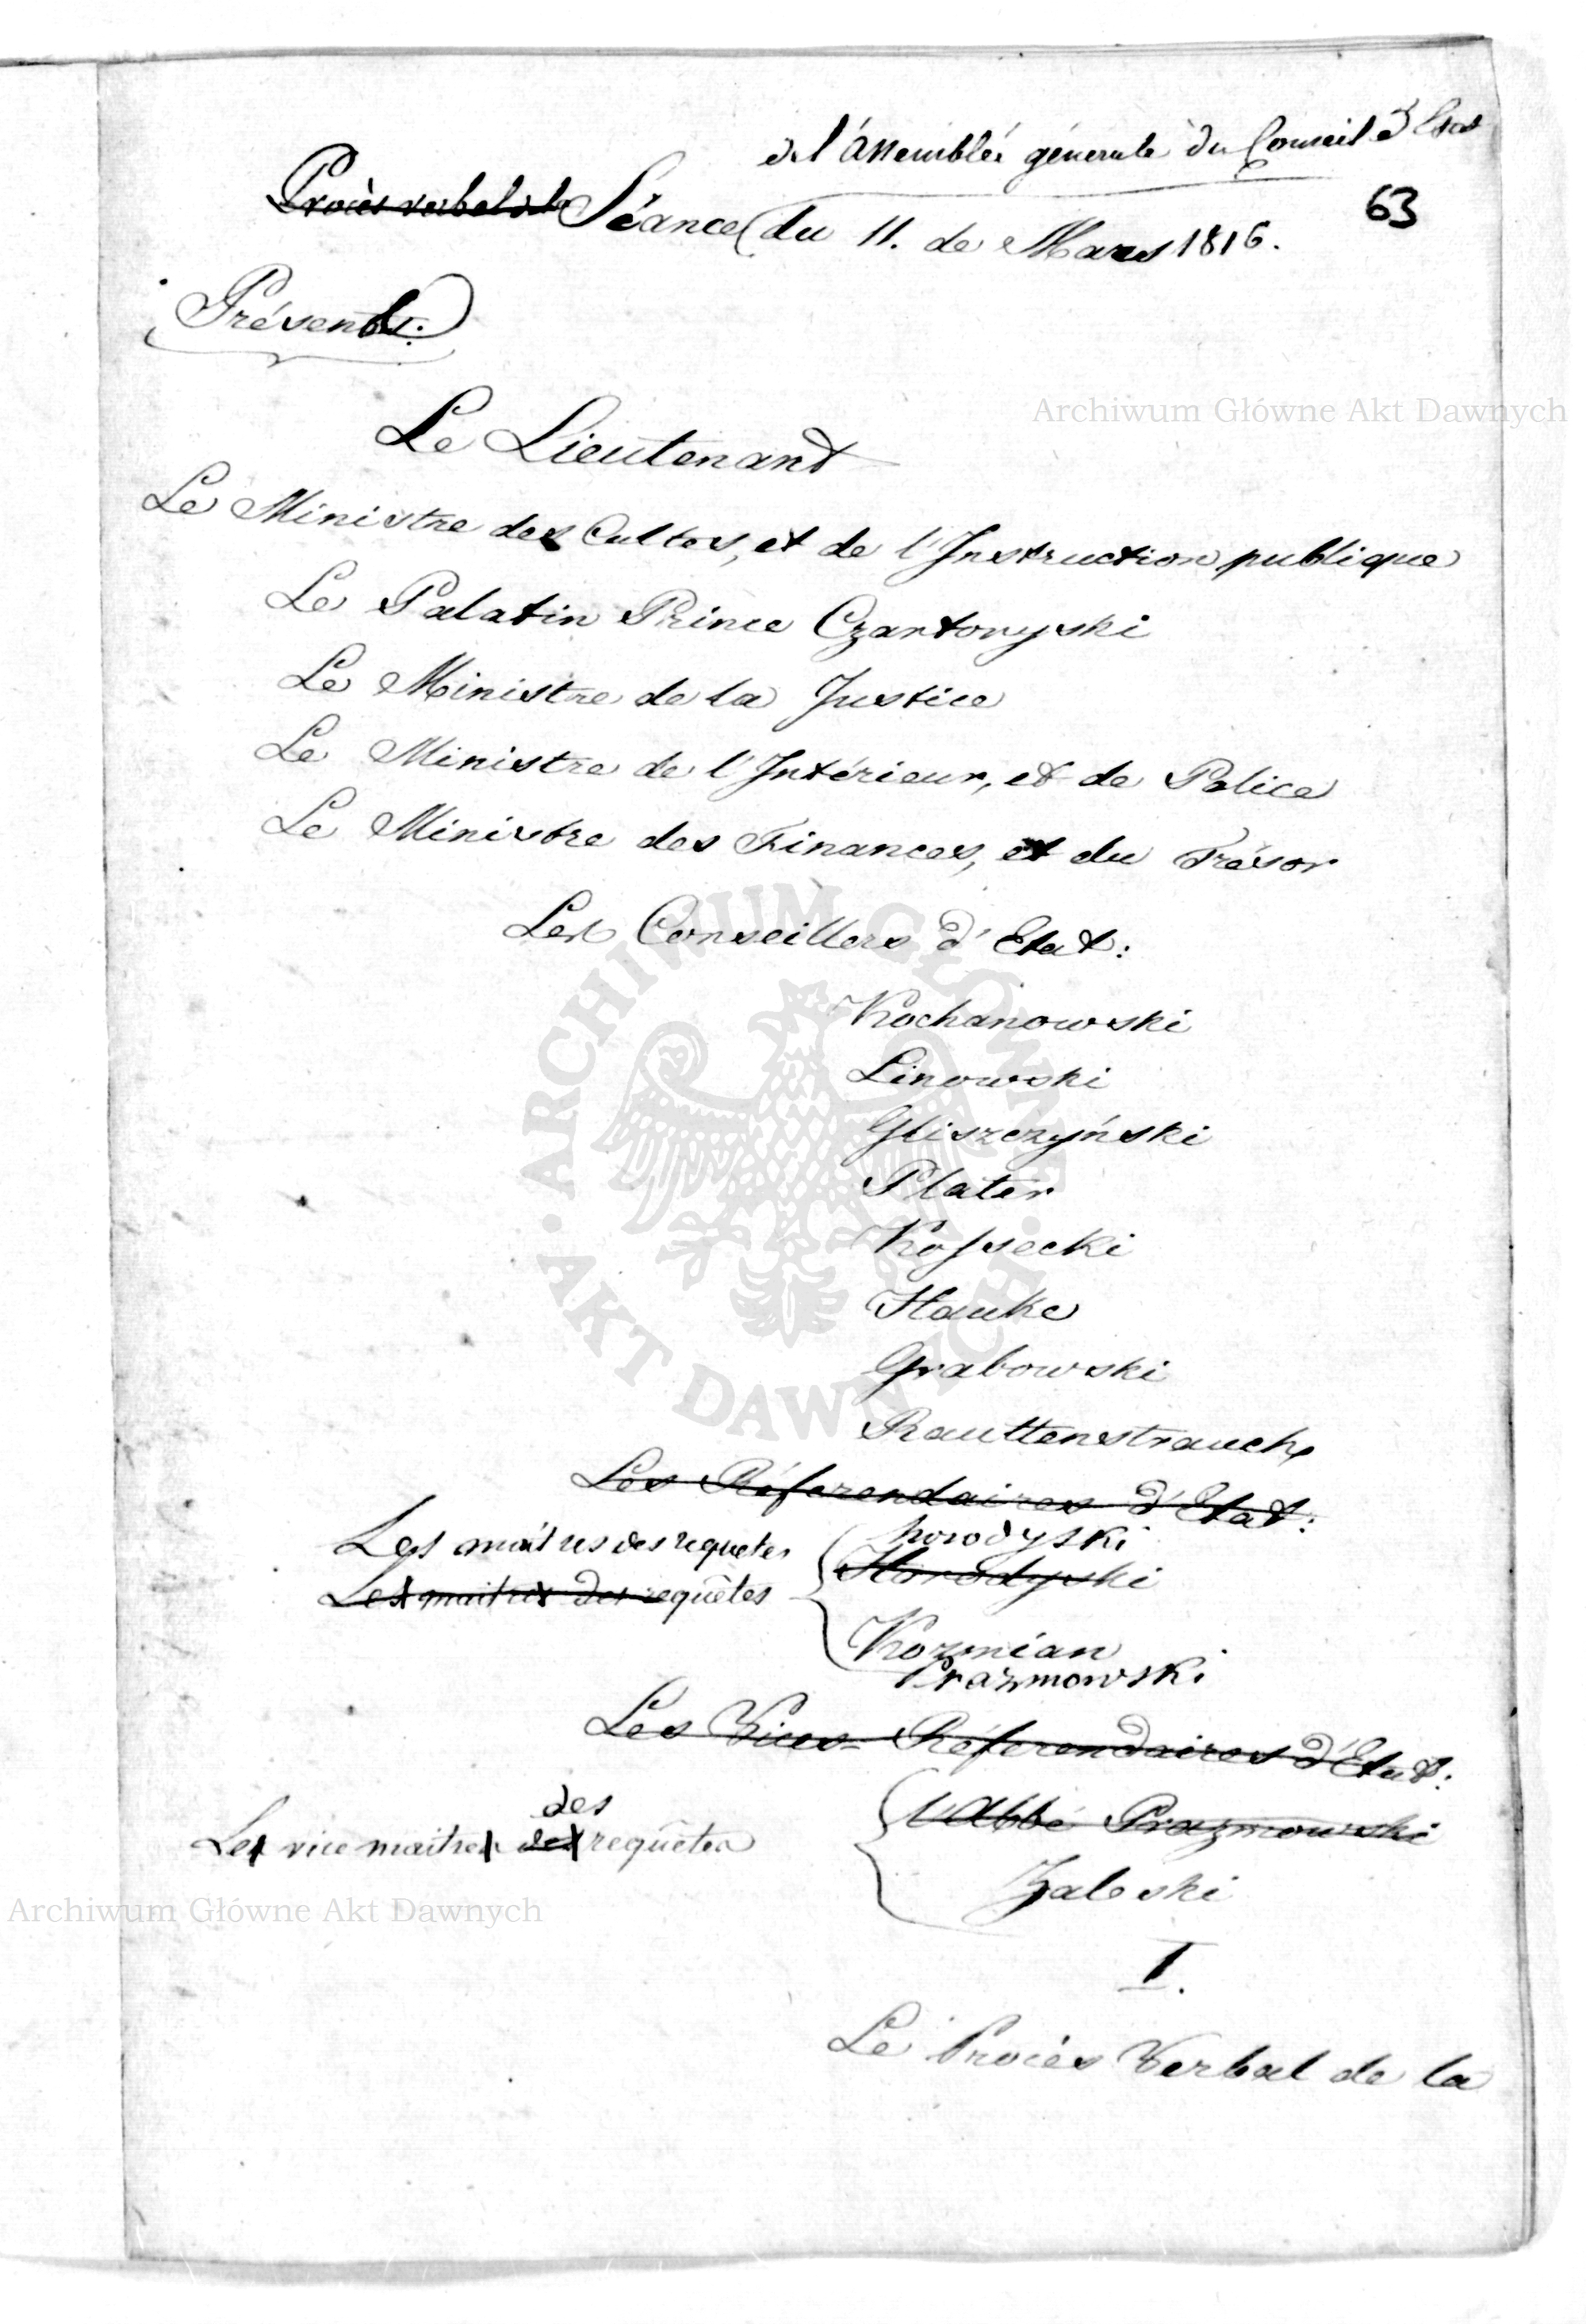 de l'Assemblée générale du Conseil d'Etat
63
Procès verbal de la Séance du 11. de Mars 1816.
Présents.
Archiwum Główne Akt Dawnych
Le Lieutenant
Le Ministre des Cultes, et de l'Instruction publique
Le Palatin Prince Czartoryski
Le Ministre de la Justice
Le Ministre de l'Intérieur, et de Police
Le Ministre des Finances, et du Trésor
Les Conseillers d'Etat:
Kochanowski
Linowski
Gliszczyński
Plater
Kossecki
Hauke
Grabowski
Rauttenstrauch
Les Référendaires d'Etat:
Les maitres des requetes
horodyski
Les maitres des requêtes
Horodyski
Kozmian
Prazmowski
Les Vices-Référendaires d'Etat:
des
l'Abbé Prazmowski
Les vice maitres des requêtes
Zaleski
Archiwum Główne Akt Dawnych
I.
Le Procès Verbal de la
ARCHIWUM GŁÓWNE AKT DAWNYCH